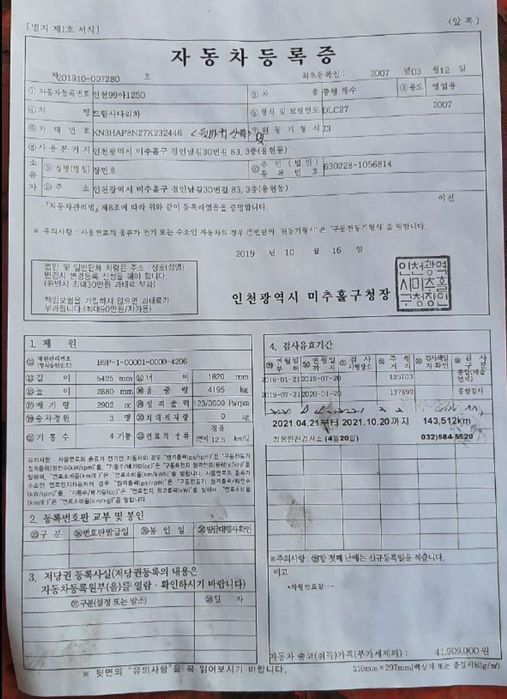 [별지 제1호 서식]
(앞 쪽)
자동차등록증
제201910-007280 호 최초등록일 : 2007 년03 월12 일
①자동차등록번호 인천99아1250 ②차 종 중형 특수 ③용도 영업용
④차 명 드림사다리차 ⑤형식 및 모델연도 DLC27 2007
⑥차 대 번 호 KN3HAP8N27K232446 ⑦원동기형식 J3
⑧사용본거지 인천광역시 미추홀구 경인남길30번길 83, 3층(용현동)
소유자 ⑨성명(명칭) 장민호 ⑩주민(법인)등록번호 630228-1056814
⑪주 소 인천광역시 미추홀구 경인남길30번길 83, 3층(용현동)
이전
「자동차관리법」제8조에 따라 위와 같이 등록하였음을 증명합니다.
※ 유의사항 : 사용연료의 종류가 전기 또는 수소인 자동차의 경우 ⑦번란의 '원동기형식'은 '구동전동기형식'을 말합니다.
2019 년 10 월 16 일
법인 및 일반단체 차량은 주소ㆍ상호(성명)
변경시 변경등록 신청을 해야 합니다.
(위반시 최대30만원 과태료 부과)
책임보험을 가입하지 않으면 과태료가
부과됩니다.(최대90만원/자가용)
인천광역시 미추홀구청장
인천광역
시미추홀
구청장인
1. 제 원
⑫제원관리번호(형식승인번호) B9P-1-00001-0000-4206
⑬길 이 5425 mm ⑭너 비 1820 mm
⑮높 이 2880 mm ⑯총 중 량 4195 kg
⑰배 기 량 2902 cc ⑱정격출력 123/3800 Ps/rpm
⑲승차정원 3 명 ⑳최대적재량 0 kg
기 통 수 4 기통 연료의 종류 경유 (연비 12.5 km/ℓ)
2. 등록번호판 교부 및 봉인
구 분 번호판발급일 봉 인 일 발급대행자확인
3. 저당권 등록사실(저당권등록의 내용은
자동차등록원부(을)를 열람ㆍ확인하시기 바랍니다)
구분(설정 또는 말소) 일 자
4. 검사유효기간
연월일부터 연월일까지 검사시행장소 주행거리 검사책임자확인 검사구분
2019-01-21 2019-07-20 135703
2019-07-21 2020-01-20 137892 종합검사
2021.04.21부터 2021.10.20까지 143,512km
(4월20일) 032)584-5520
※주의사항 : 항 첫째 란에는 신규등록일을 적습니다.
비고
•차령만료일:--
자동차 출고(취득)가격(부가세제외) : 41,909,000 원
※ 뒷면의 "유의사항"을 꼭 읽어보시기 바랍니다.
210mm×297mm(백상지 또는 중질지80g/㎡)